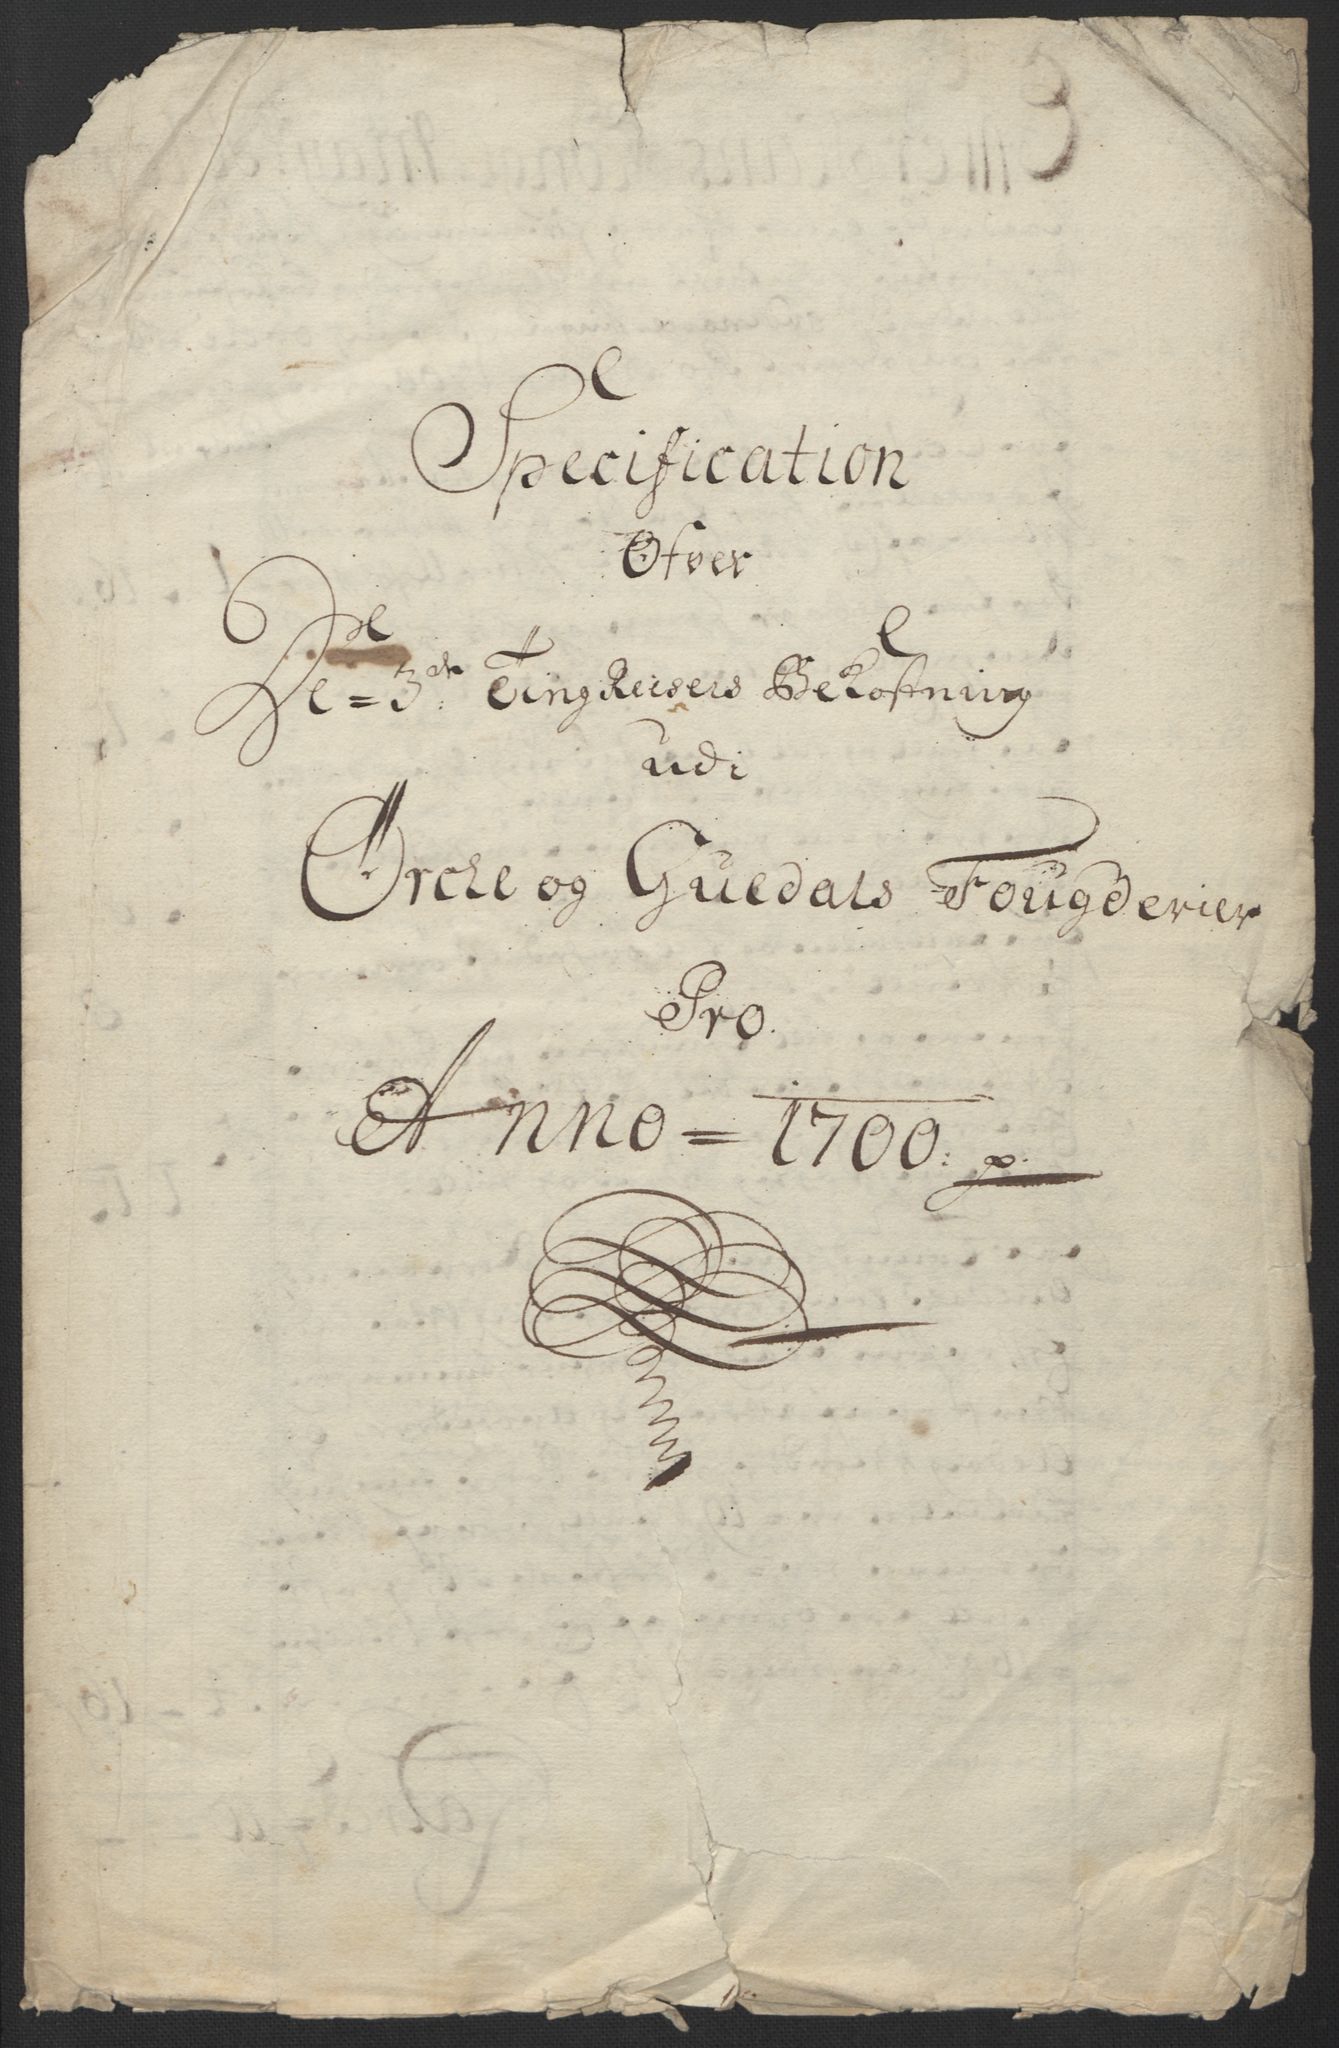 Specification
Ofver
De = 3de Tingreisers Bekostning
udi
Orcle og Guedals Fougderier
Pro.
Anno = 1700: p.